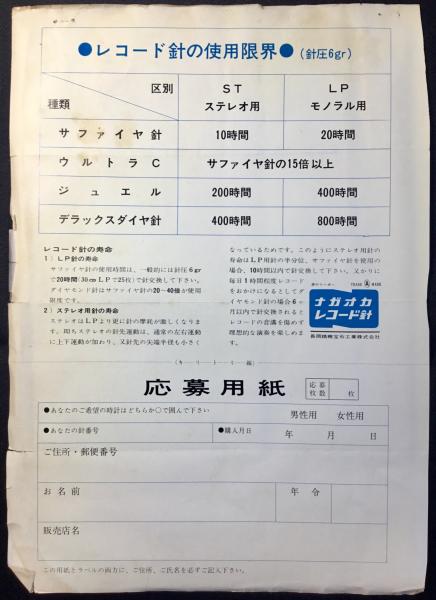 ●レコード針の使用限界●(針圧6gr)
区別
種類
ST
ステレオ用
LP
モノラル用
サファイヤ針 10時間 20時間
ウルトラC サファイヤ針の15倍以上
ジュエル 200時間 400時間
デラックスダイヤ針 400時間 800時間
レコード針の寿命
1）LP針の寿命
サファイヤ針の使用時間は、一般的には針圧6gr
で20時間(30cmLPで25枚)で針交換して下さい。
ダイヤモンド針はサファイヤ針の20〜40倍が使用
限度です。
2）ステレオ用針の寿命
ステレオはLPより更に針の摩耗が激しくなりま
す。即ちステレオの針先運動は、通常の左右運動
に上下運動が加わり、又針先の尖端半径も小さく
なっているためです。このようにステレオ用針の
寿命はLP用針の半分位、サファイヤ針を使用の
場合、10時間以内で針交換して下さい。又かりに
毎日1時間程度レコード
をおかけになるとしてダ
イヤモンド針の場合6ヶ
月以内で針交換されると
レコードの音溝を傷めず
理想的な演奏を楽しめま
す。
TRADE MARK
ナガオカ
レコード針
長岡精機宝石工業株式会社
(キリトリ線)
応募用紙
応募枚数 枚
●あなたのご希望の時計はどちらか○で囲んで下さい 男性用 女性用
●あなたの針番号 ●購入月日 年 月 日
ご住所・郵便番号
お名前 年令
販売店名
この用紙とラベルの両方に、ご住所、ご氏名を必ずご記入下さい。